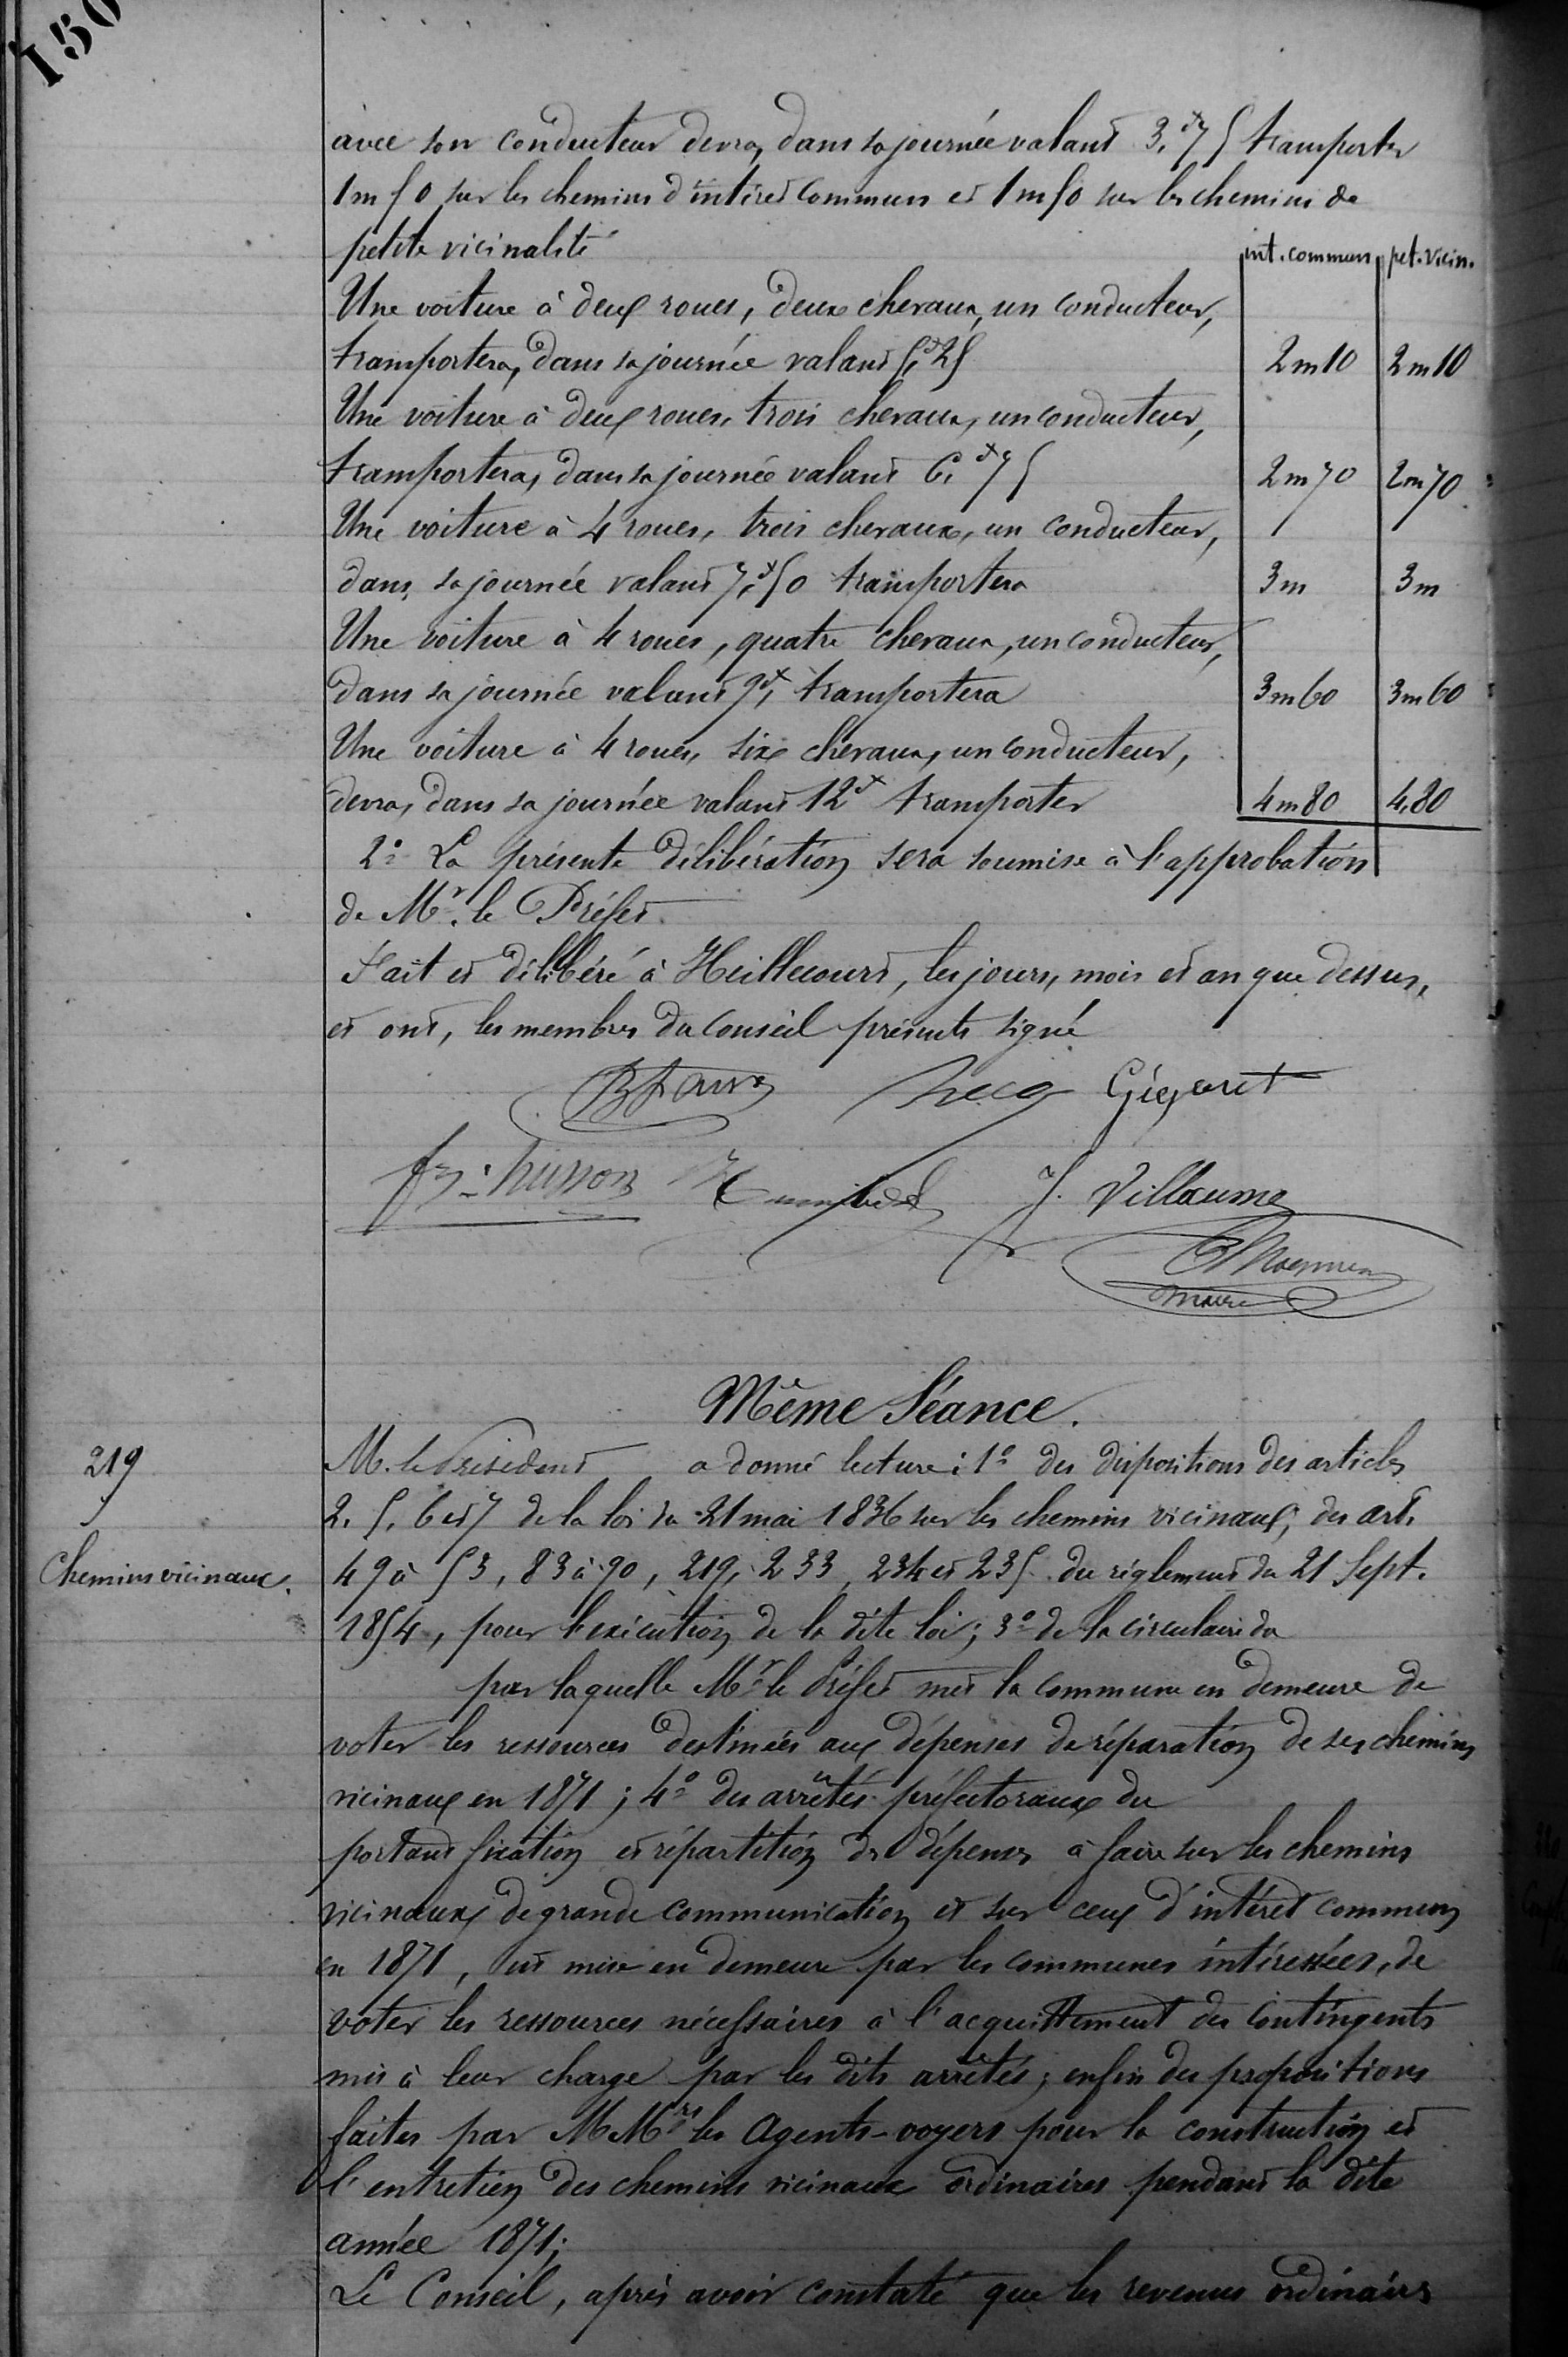 150
avec son conducteur devra, dans sa journée valant 3,fr 75 transporter
1m50 sur les chemins d'intérêt commun et 1m50 sur les chemins de
petite vicinalité
int. commun pet. vicin.
Une voiture à deux roues, deux chevaux, un conducteur,
transportera, dans sa journée valant 5,fr 25 2m10 2m10
Une voiture à deux roues, trois chevaux, un conducteur,
transportera, dans sa journée valant 6,fr 75 2m70 2m70
Une voiture à 4 roues, trois chevaux, un conducteur,
dans sa journée valant 7,fr 50 transportera 3m 3m
Une voiture à 4 roues, quatre chevaux, un conducteur,
dans sa journée valant 9fr, transportera 3m60 3m60
Une voiture à 4 roues, six chevaux, un conducteur,
devra, dans sa journée valant 12fr transporter 4m80 4,80
2° La présente délibération sera soumise à l'approbation
de Mr. le Préfet.
Fait et délibéré à Heillecourt, les jours, mois et an que dessus,
et ont, les membres du Conseil présents signé
Gégout
fs. husson J. Villaume
maire
Même Séance.
219
Chemins vicinaux.
M. le Président a donné lecture : 1° des dispositions des articles
2. 5. 6 et 7 de la loi du 21 mai 1836 sur les chemins vicinaux; des art.
49 à 53, 83 à 90, 219, 233, 234 et 235 du règlement du 21 Sept.
1854, pour l'exécution de la dite loi; 3° de la circulaire du
par laquelle Mr le Préfet met la commune en demeure de
voter les ressources destinées aux dépenses de réparation de ses chemins
vicinaux en 1871; 4° des arrêtés préfectoraux du
portant fixation et répartition des dépenses à faire sur les chemins
vicinaux de grande communication et sur ceux d'intérêt commun
en 1871, et mise en demeure par les communes intéressées, de
voter les ressources nécessaires à l'acquittement des contingents
mis à leur charge par les dits arrêtés; enfin des propositions
faites par MMrs les Agents-voyers pour la construction et
l'entretien des chemins vicinaux ordinaires pendant la dite
année 1871;
Le Conseil, après avoir constaté que les revenus ordinaires